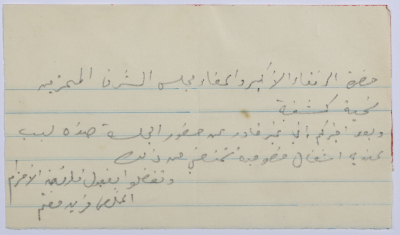 حضرة الرفقاء الأكبر واعضاء مجلس الشرف المحترمين
تحية كشفية
وبعد اخبركم اني غير قادر عن حضور الجلسة هذه لسبب
عندي اشغال خصوصية تمنعني عن ذلك
وتفضلوا بقبول فائق الاحترام
المخلص فريد